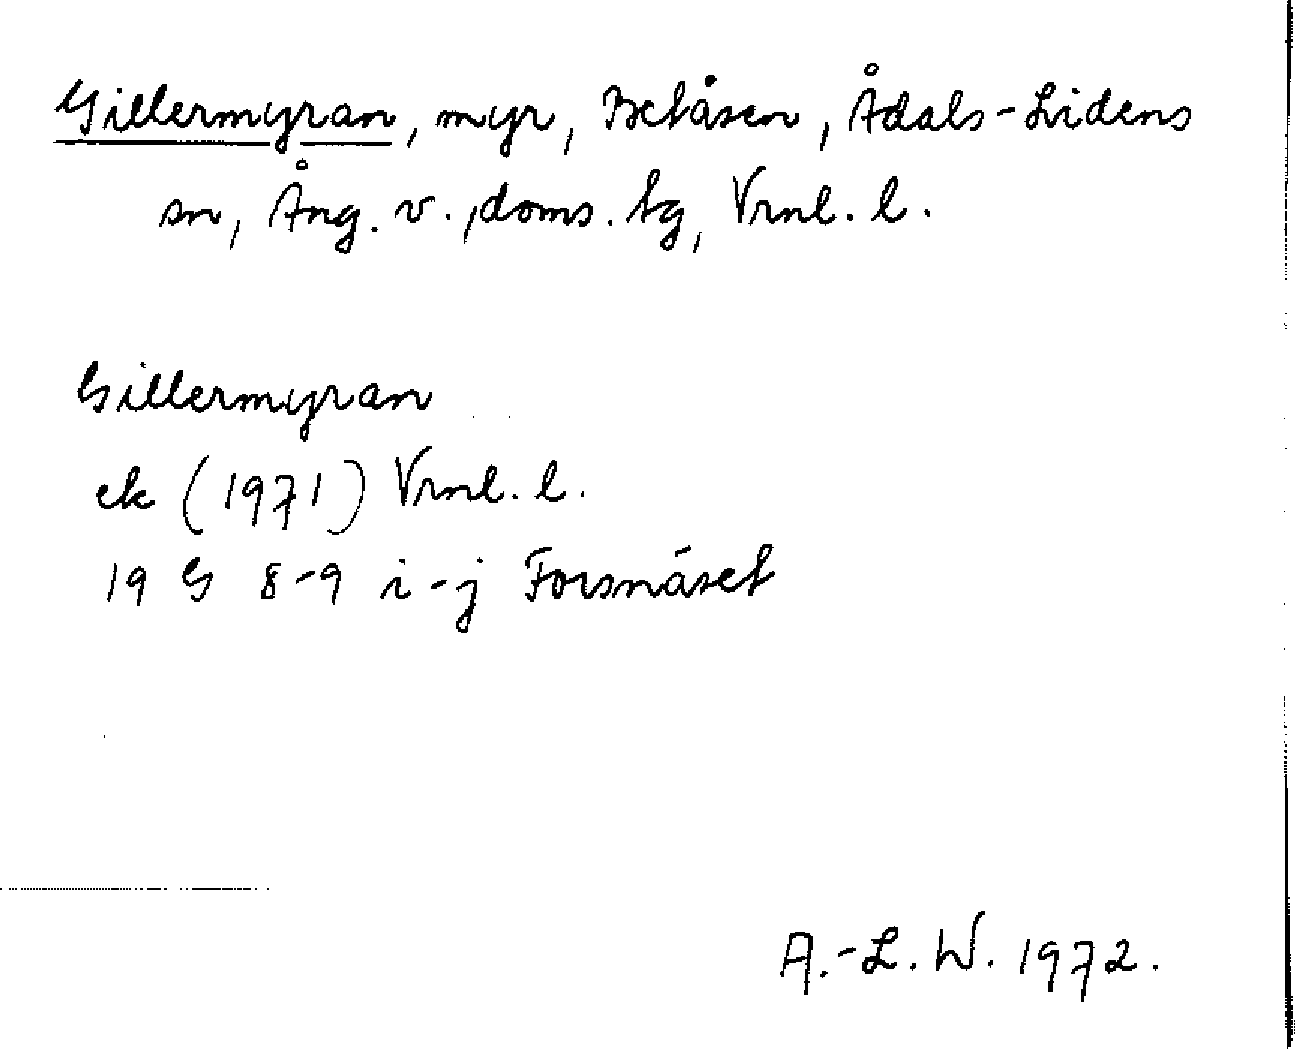 Gillermyran, myr, Betåsen, Ådals-Lidens
sn, Ång. v., doms. tg, Vrnl. l.
Gillermyran
ek (1971) Vrnl. l.
19 G 8-9 i-j Forsnäset
A.-L. W. 1972.